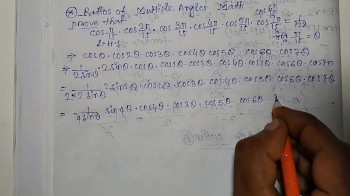 Ratios of Multiple Angles Math
prove that cos π/15 · cos 2π/15 · cos 3π/15 · cos 4π/15 · cos 5π/15 · cos 6π/15
L.H.S. π/15 = θ
⇒ cosθ·cos2θ·cos3θ·cos4θ·cos5θ·cos6θ·cos7θ
⇒ 1/2sinθ 2sinθ·cosθ·cos2θ·cos3θ·cos4θ·cos5θ·cos6θ·cos7θ
= 1/2×2sinθ 2sin2θ·cos2θ·cos3θ·cos4θ·cos5θ·cos6θ·cos7θ
= 1/4sinθ sin4θ·cos4θ·cos3θ·cos5θ·cos6θ